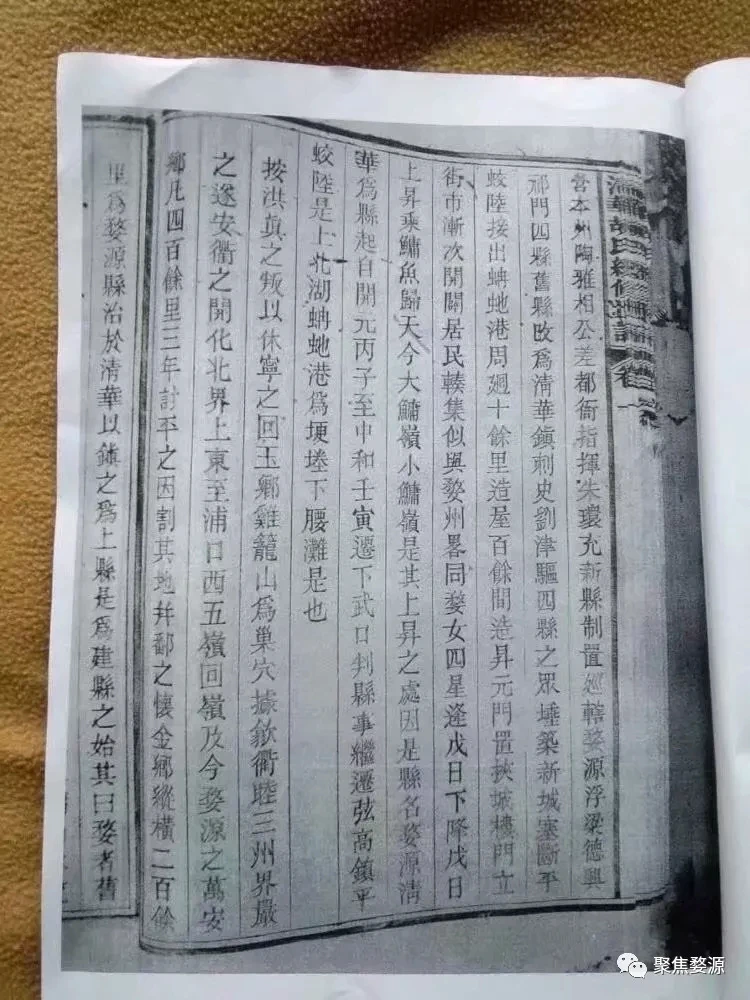 清華胡氏統修譜卷一
營本州陶雅相公差都衙指揮朱環充新縣制置廵轄婺源浮梁德興
祁門四縣舊縣改爲清華鎮刺史劉津驅四縣之眾埵築新城塞斷平
蚊陸接出蚺虵港周廻十餘里造屋百餘間造昇元門置挾城樓門立
街市漸次開闢居民輳集似與婺州畧同婺女四星逢戊日下降戊日
上昇乘鱅魚歸天今大鱅嶺小鱅嶺是其上昇之處因是縣名婺源清
華爲縣起自開元丙子至中和壬寅遷下武口判縣事繼遷弦高鎮平
蛟陸是上北湖蚺虵港爲埂埊下腰灘是也
按洪真之叛以休寧之回玉鄉雞籠山爲巢穴據歙衢睦三州界嚴
之遂安衢之開化北界上東至浦口西五嶺回嶺及今婺源之萬安
鄉凡四百餘里三年討平之因割其地幷鄱之懷金鄉縱横二百餘
里爲婺源縣治於清華以鎮之爲上縣是爲建縣之始其曰婺者舊
聚焦婺源